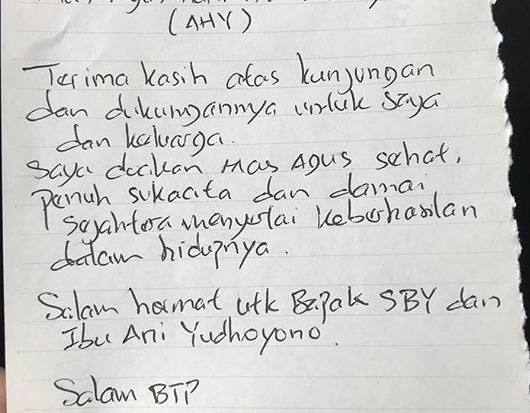 (AHY)
Terima kasih atas kunjungan
dan dikungannya untuk saya
dan keluarga.
Saya doakan Mas Agus sehat,
penuh sukacita dan damai
sejahtera menyertai keberhasilan
dalam hidupnya.
Salam hormat utk Bapak SBY dan
Ibu Ani Yudhoyono.
Salam BTP